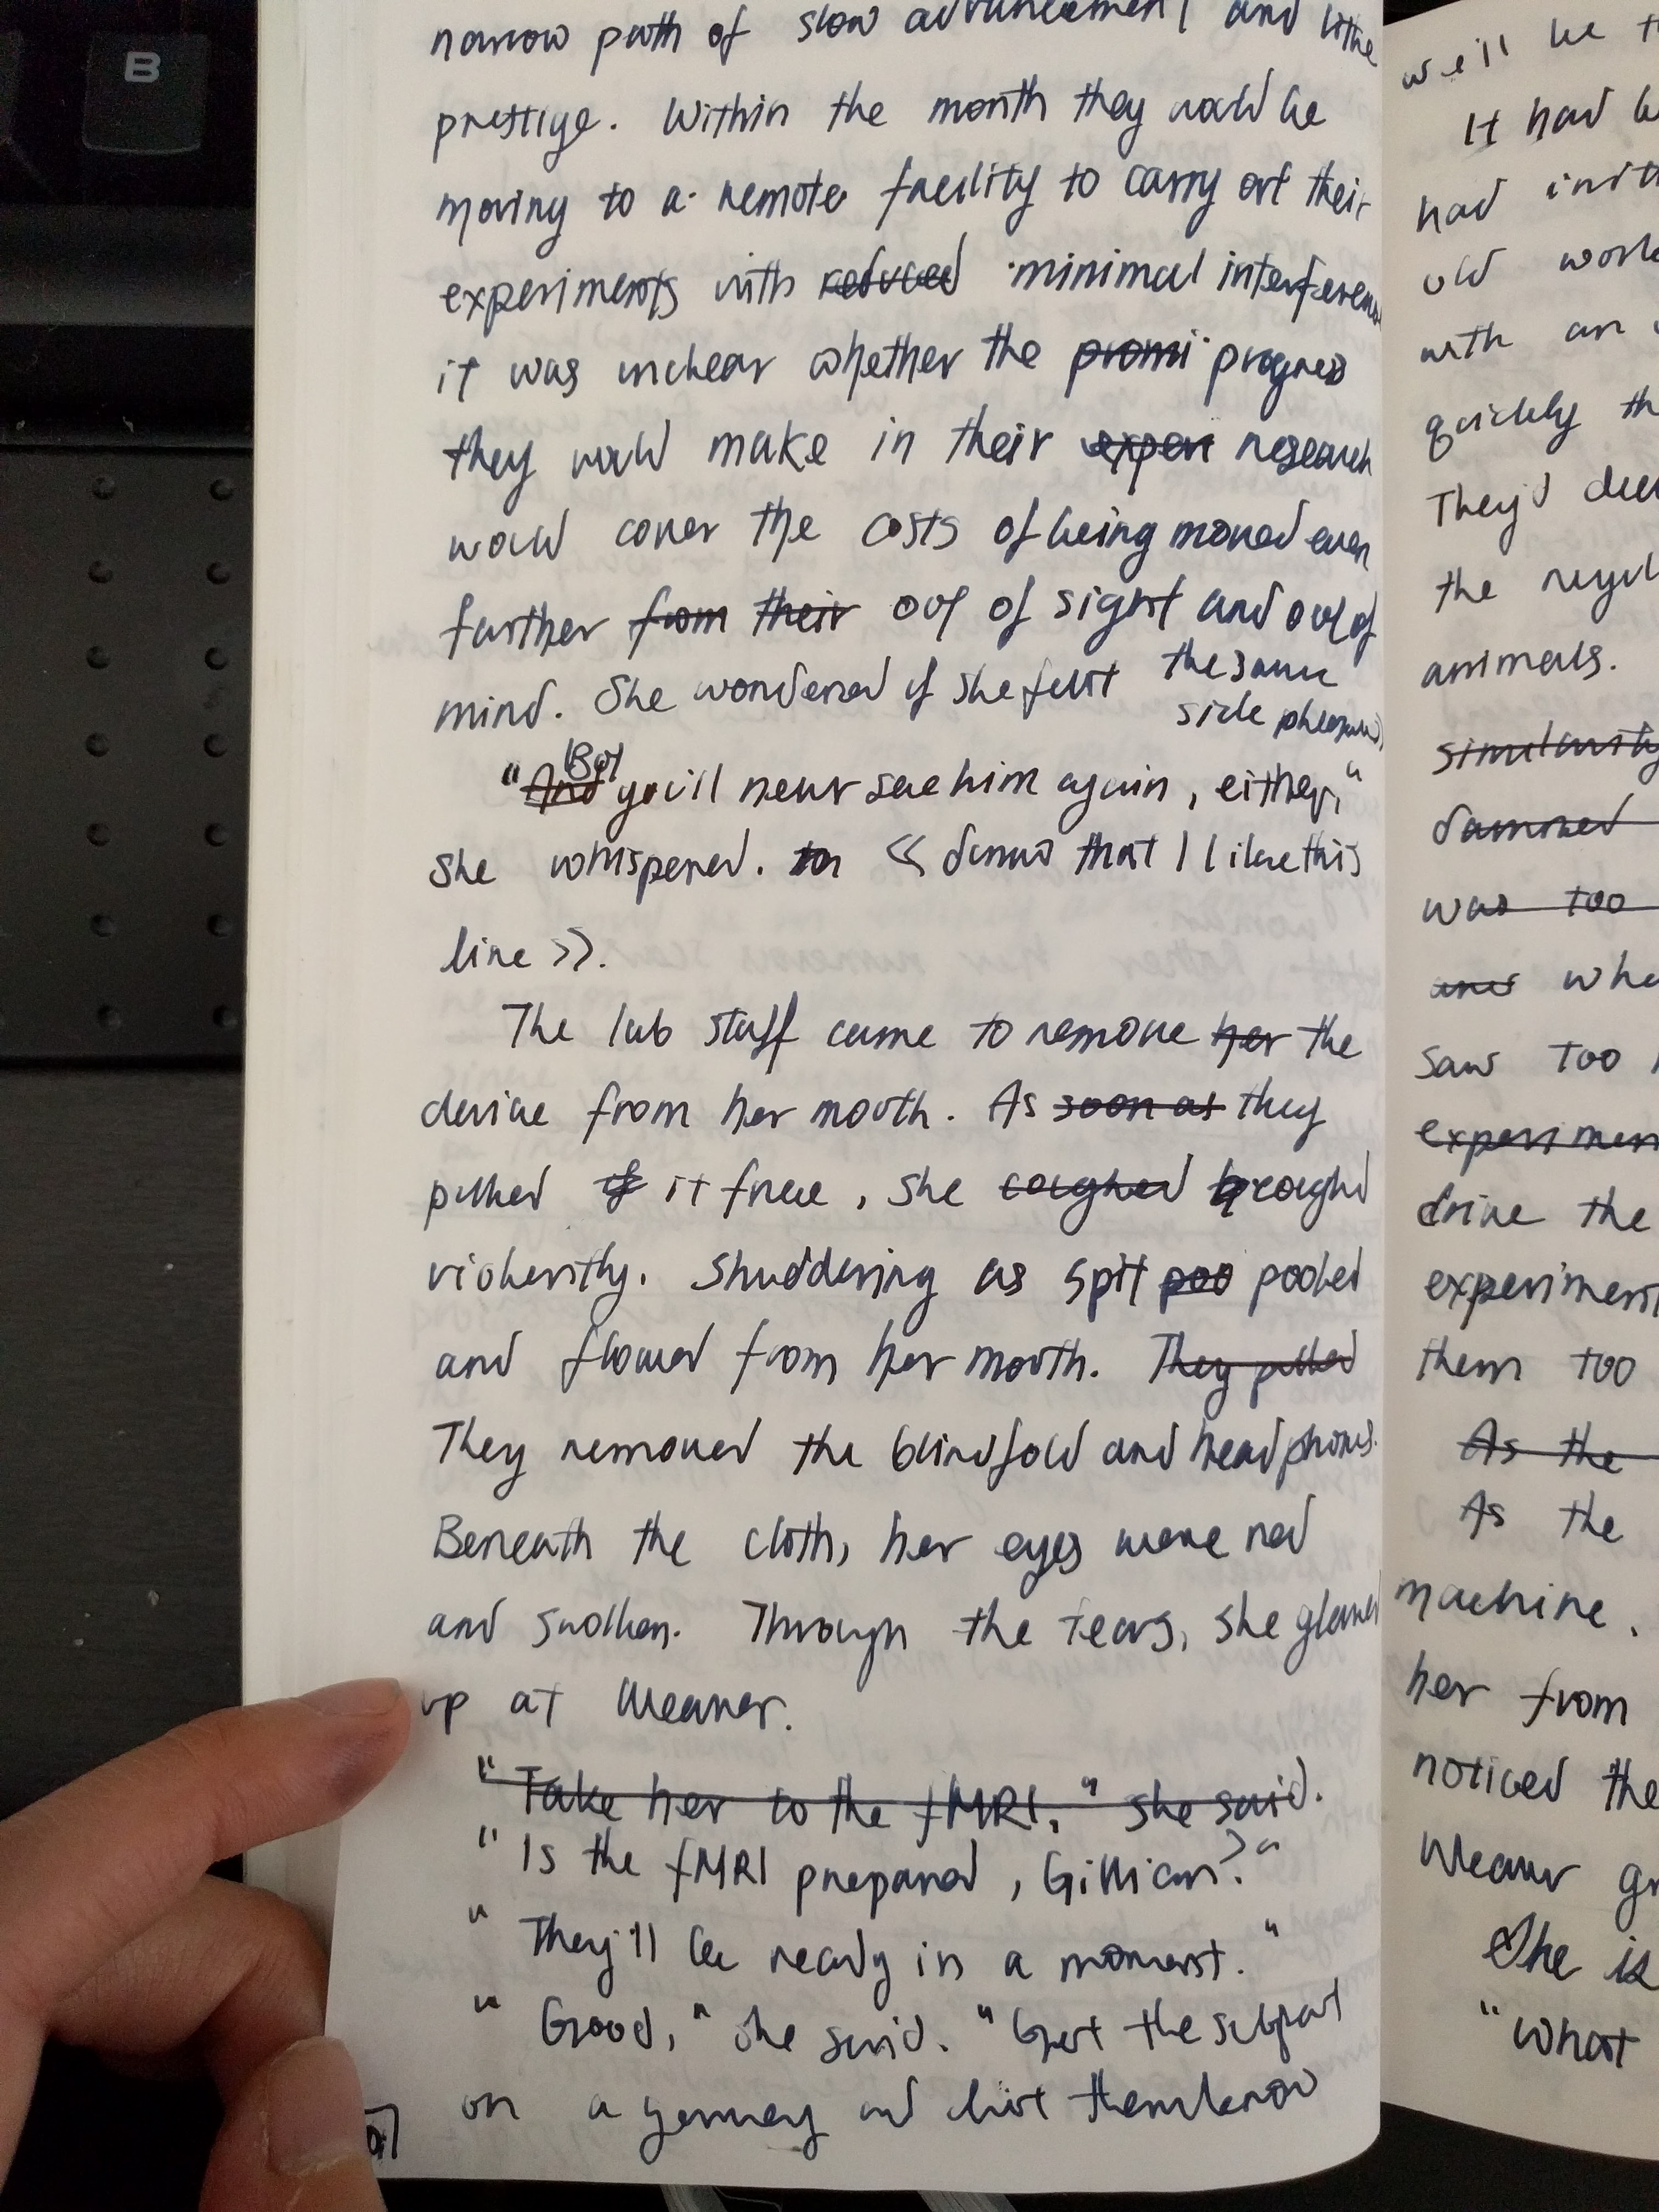 B
narrow path of slow advancement and little
prestige. Within the month they would be
moving to a remote facility to carry out their
experiments with reduced minimal interference
it was unclear whether the promi progress
they would make in their experi research
would cover the costs of being moved even
further from their out of sight and out of
mind. She wondered if she felt the same
sick pleasure
"And But you'll never see him again, either,"
she whispered. to << damn that I like this
line >>.
The lab staff came to remove her the
device from her mouth. As soon as they
pulled it free, she coughed coughed
violently. Shuddering as spit poo pooled
and flowed from her mouth. They pulled
They removed the blindfold and headphones.
Beneath the cloth, her eyes were red
and swollen. Through the tears, she glared
up at Weaver.
"Take her to the fMRI," she said.
"Is the fMRI prepared, Gillian?"
"They'll be ready in a moment."
"Good," she said. "Get the subject
on a gurney and let them know
we'll be
It had
had
old
with an
quickly
They'd
the
animals.
similarity
damned
was too
what
saw too
experiment
drive the
experiment
them too
As the
As the
machine.
her from
noticed the
Weaver
She is
"What